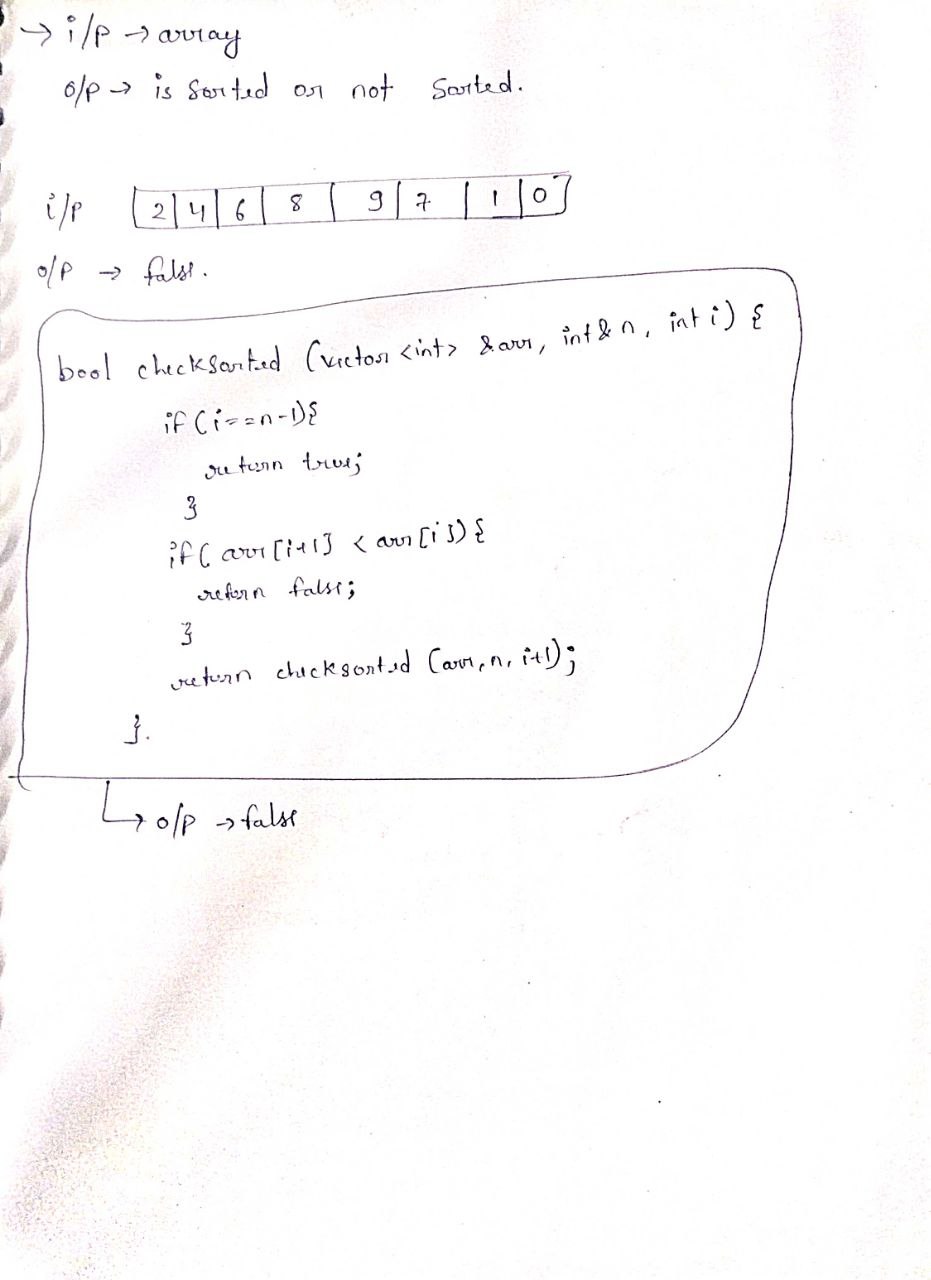 → i/p → array
o/p → is sorted or not sorted.
i/p 2 4 6 8 9 7 1 0
o/p → false.
bool checksorted (vector <int> &arr, int& n, int i) {
if (i==n-1){
return true;
}
if( arr[i+1] < arr[i]) {
return false;
}
return checksorted (arr, n, i+1);
}.
↳ o/p → false